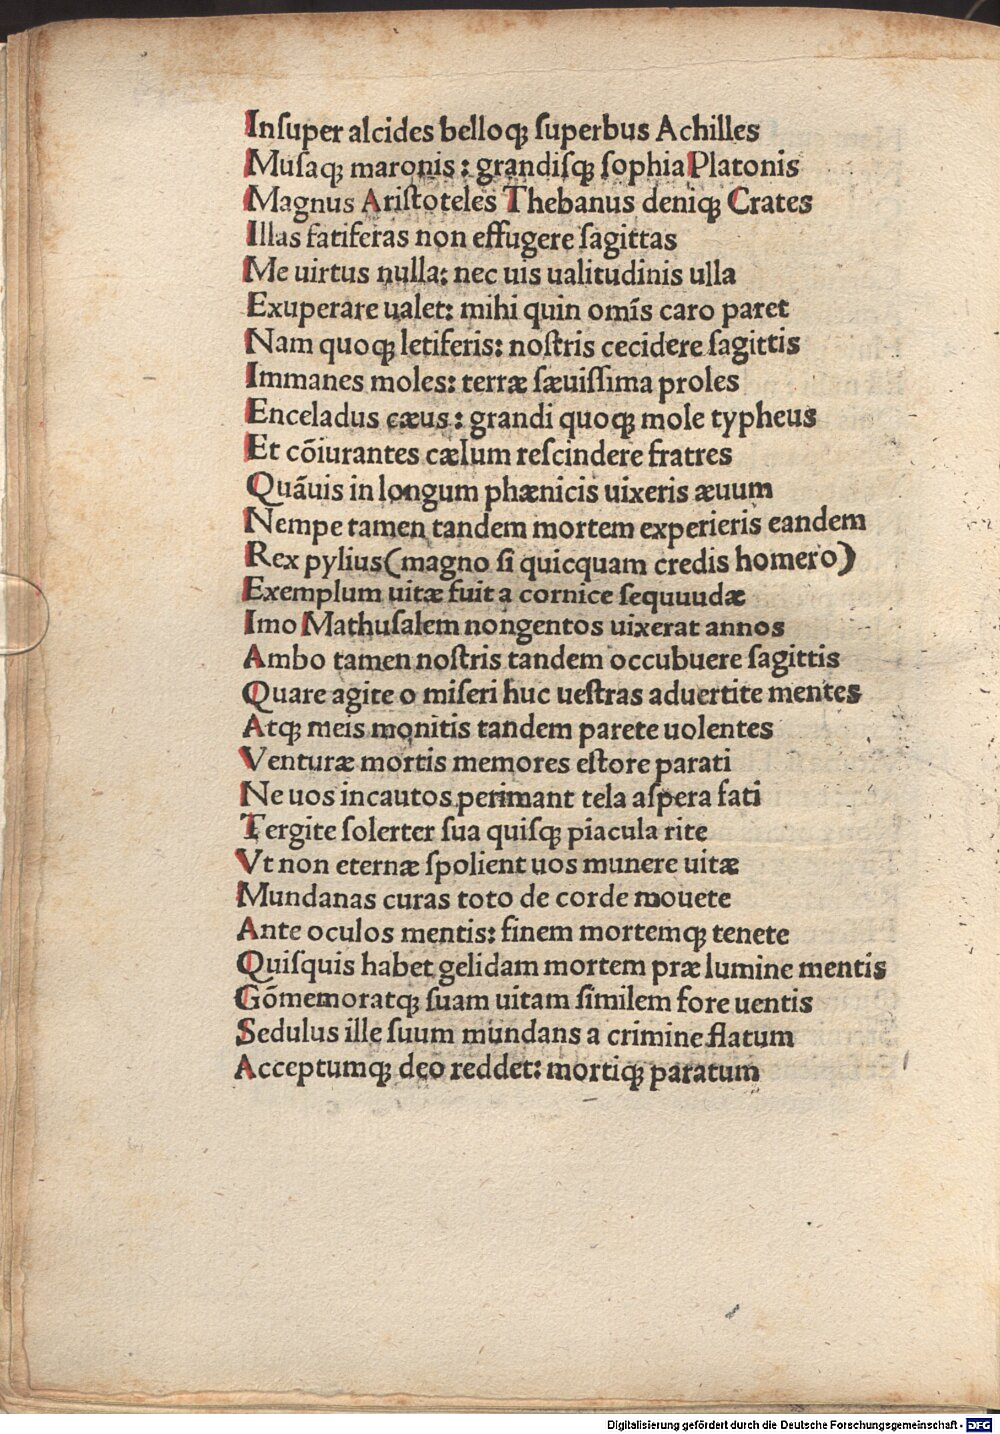 Inſuper alcides belloqꝫ ſuperbus Achilles
Muſaqꝫ maronis: grandiſqꝫ ſophia Platonis
Magnus Ariſtoteles Thebanus deniqꝫ Crates
Illas fatiferas non effugere ſagittas
Me uirtus nulla: nec uis ualitudinis ulla
Exuperare ualet: mihi quin omīs caro paret
Nam quoqꝫ letiferis: noſtris cecidere ſagittis
Immanes moles: terræ ſæuiſſima proles
Enceladus cæus: grandi quoqꝫ mole typheus
Et cōiurantes cælum reſcindere fratres
Quāuis in longum phænicis uixeris æuum
Nempe tamen tandem mortem experieris eandem
Rex pylius (magno ſi quicquam credis homero)
Exemplum uitæ fuit a cornice ſequuudæ
Imo Mathuſalem nongentos uixerat annos
Ambo tamen noſtris tandem occubuere ſagittis
Quare agite o miſeri huc ueſtras aduertite mentes
Atqꝫ meis monitis tandem parete uolentes
Venturæ mortis memores eſtore parati
Ne uos incautos perimant tela aſpera fati
Tergite ſolerter ſua quiſqꝫ piacula rite
Vt non eternæ ſpolient uos munere uitæ
Mundanas curas toto de corde mouete
Ante oculos mentis: finem mortemqꝫ tenete
Quiſquis habet gelidam mortem præ lumine mentis
Gōmemoratqꝫ ſuam uitam ſimilem fore uentis
Sedulus ille ſuum mundans a crimine flatum
Acceptumqꝫ deo reddet: mortiqꝫ paratum
Digitalisierung gefördert durch die Deutsche Forschungsgemeinschaft - DFG